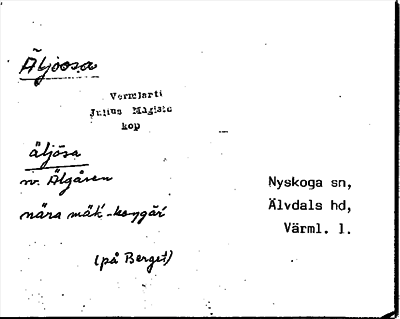 Äljoosa
Vermlarti
Julius Mägiste
kop
äljösa
nv. Älgåsen
nära mäk-
(på Berget)
Nyskoga sn,
Älvdals hd,
Värml. l.